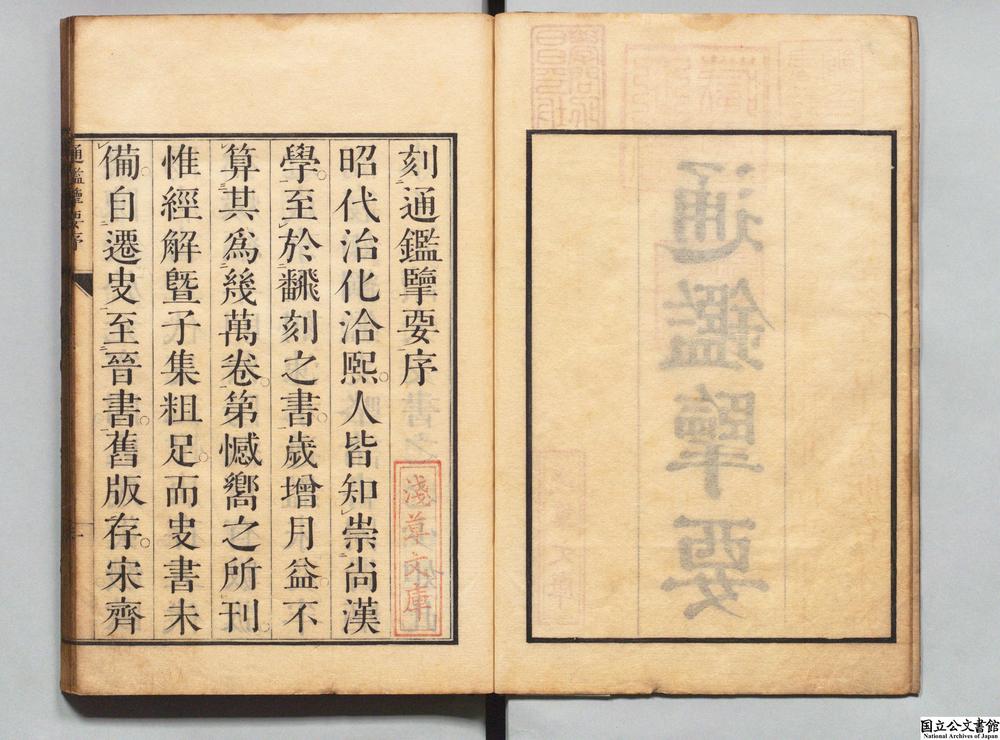 刻通鑑擥要序
昭代治化洽熙人皆知崇尚漢
學至於翻刻之書歲增月益不
算其爲幾萬卷第憾嚮之所刊
惟經解曁子集粗足而史書未
備自遷史至晉書舊版存宋齊
淺草文庫
通鑑擥要序
通鑑擥要
国立公文書館
National Archives of Japan